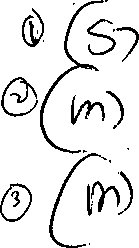 ① (S)
② (m)
③ (m)